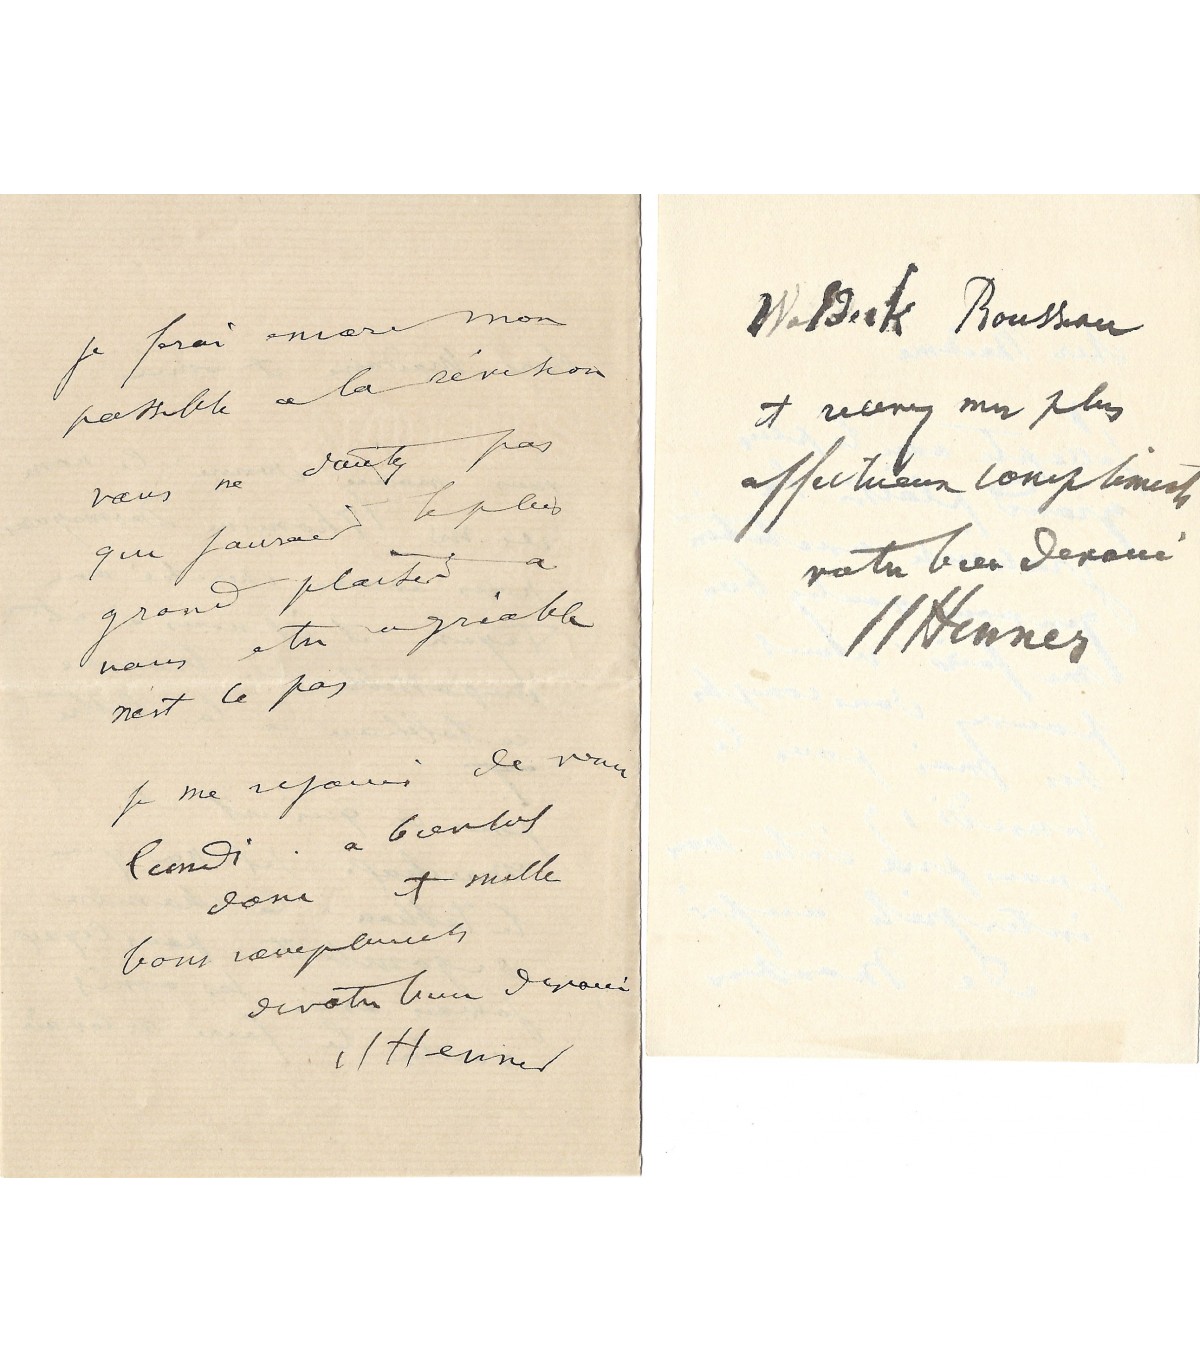 je ferai encore mon
possible a la révision
vous ne doutez pas
que j'aurais le plus
grand plaisir a
vous etre agréable
n'est ce pas
je me rejouis de vous
lundi . a bientot
donc et mille
bons compliments
de votre bien devoué
JJHenner
Waldeck Rousseau
et recevez mes plus
affectueux compliments
votre bien devoué
JJHenner